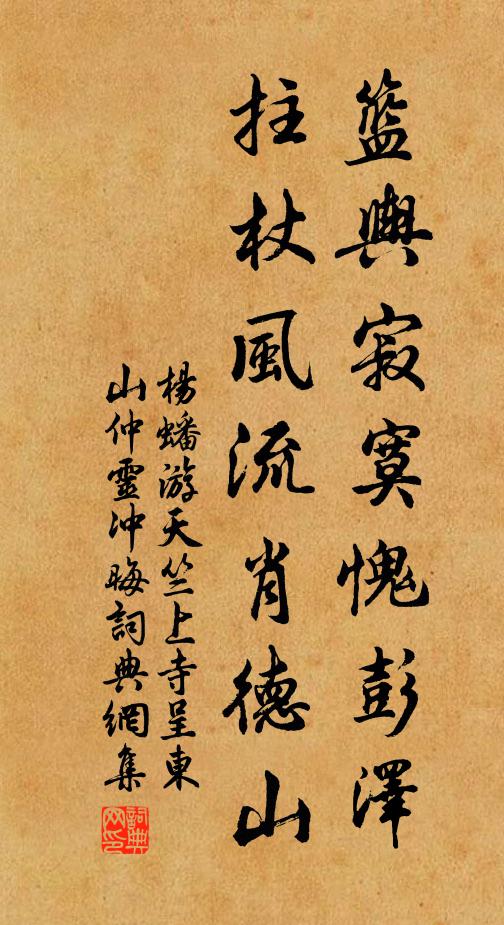 籃輿寂寞愧彭澤
拄杖風流肖德山
楊蟠游天竺上寺呈東
山仲靈沖晦詞典網集
詞典网印